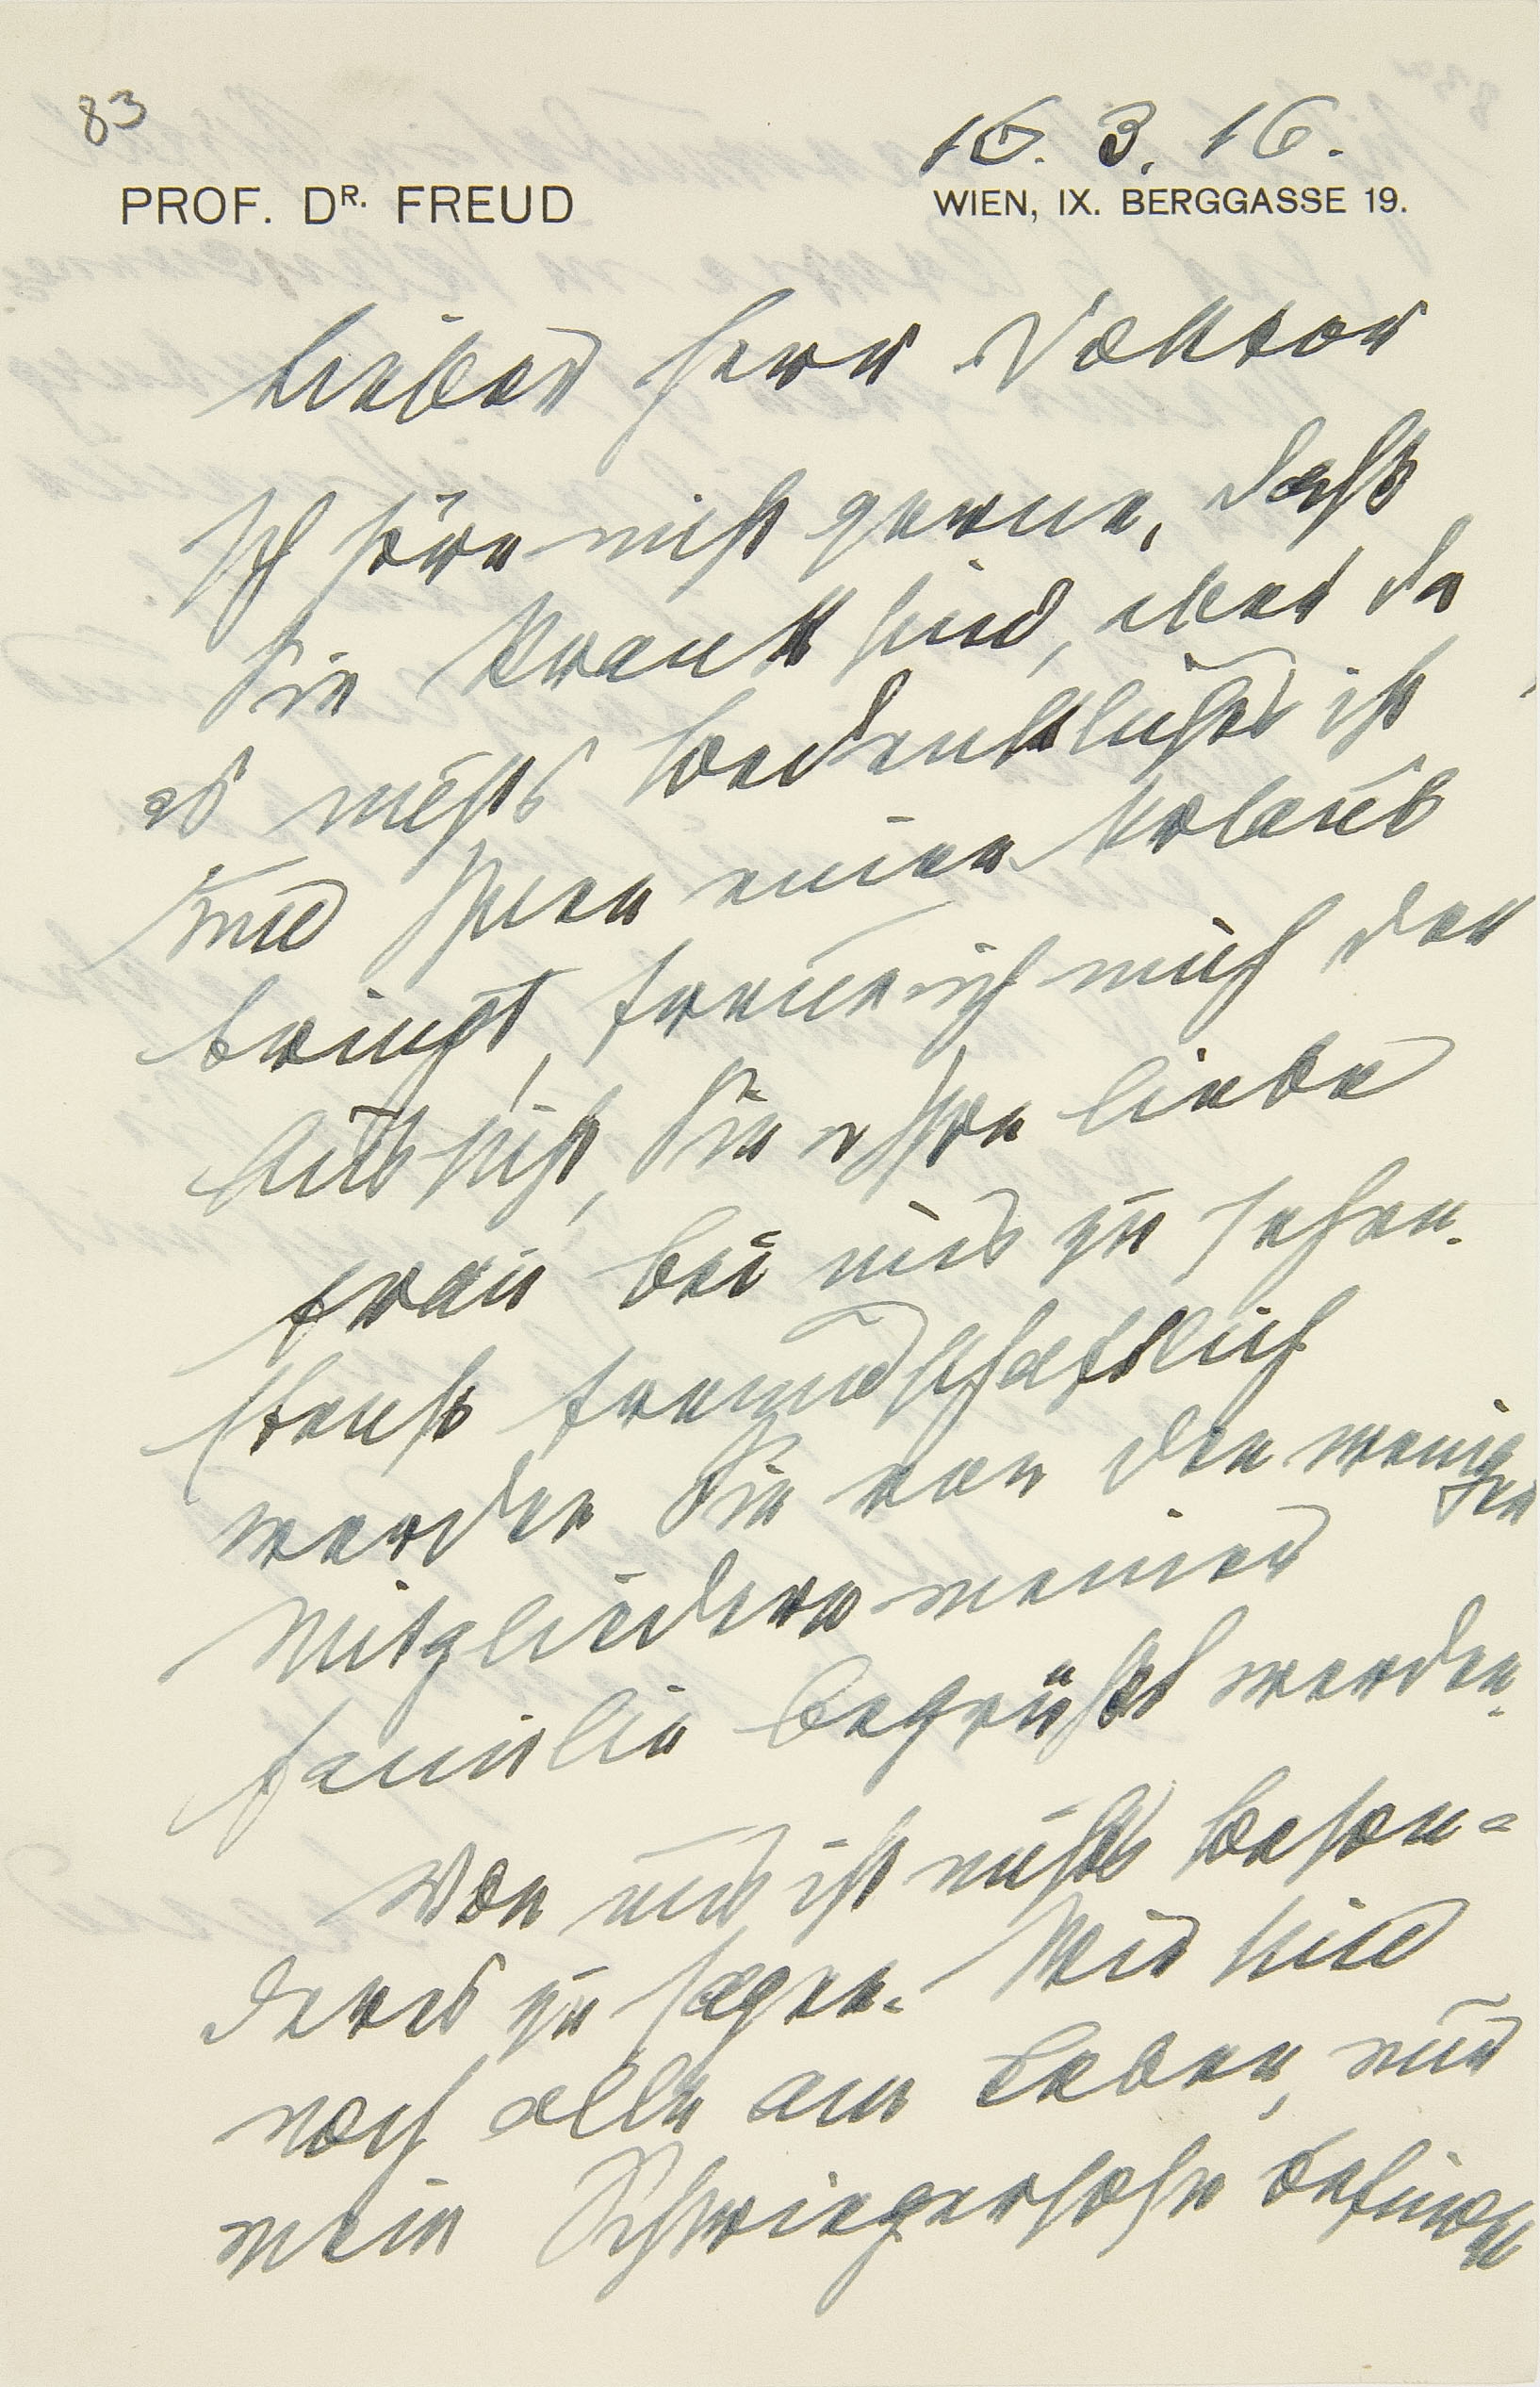 83
16. 3. 16.
PROF. DR. FREUD
WIEN, IX. BERGGASSE 19.
Lieber Herr Doktor
Ich höre nicht gerne, daß
Sie krank sind, aber da
es nichts bedenkliches ist
und Ihnen einen Urlaub
bringt, freue ich mich der
Aussicht, Sie u Ihre liebe
Frau bei uns zu sehen.
Ebenso freundschaftlich
werden Sie von den wenigen
Mitgliedern meiner
Familie begrüßt werden.
Von uns ist nichts beson-
deres zu sagen. Wir sind
noch alle am Leben, nur
mein Schwiegersohn befindet